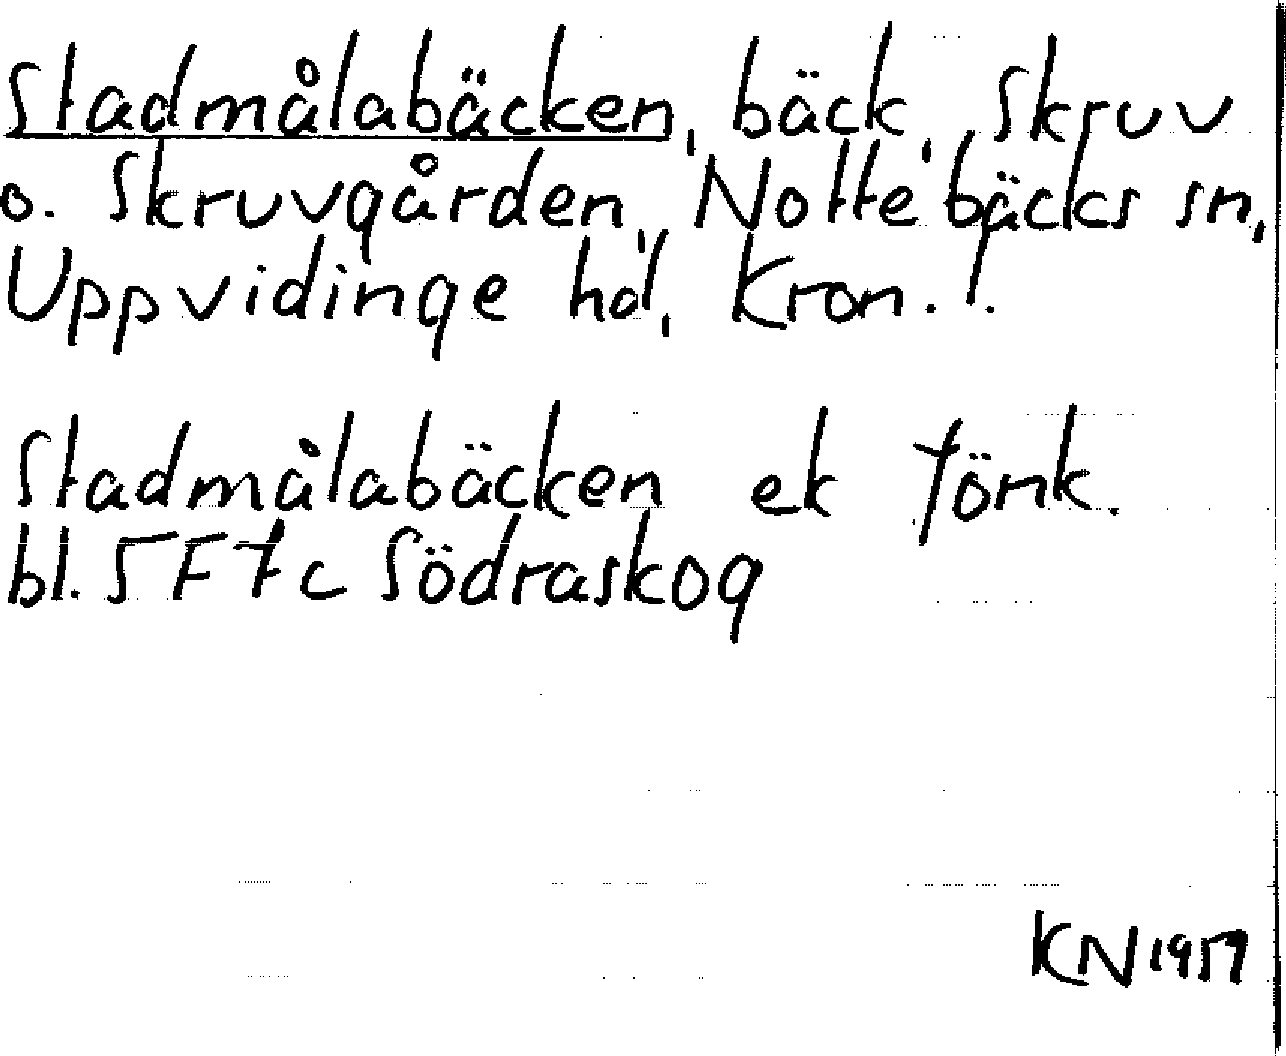 Stadmålabäcken, bäck, Skruv
o. Skruvgården, Nottebäcks sn,
Uppvidinge hd, Kron. l.
Stadmålabäcken ek
bl. 5F7c Södraskog
KN 1957